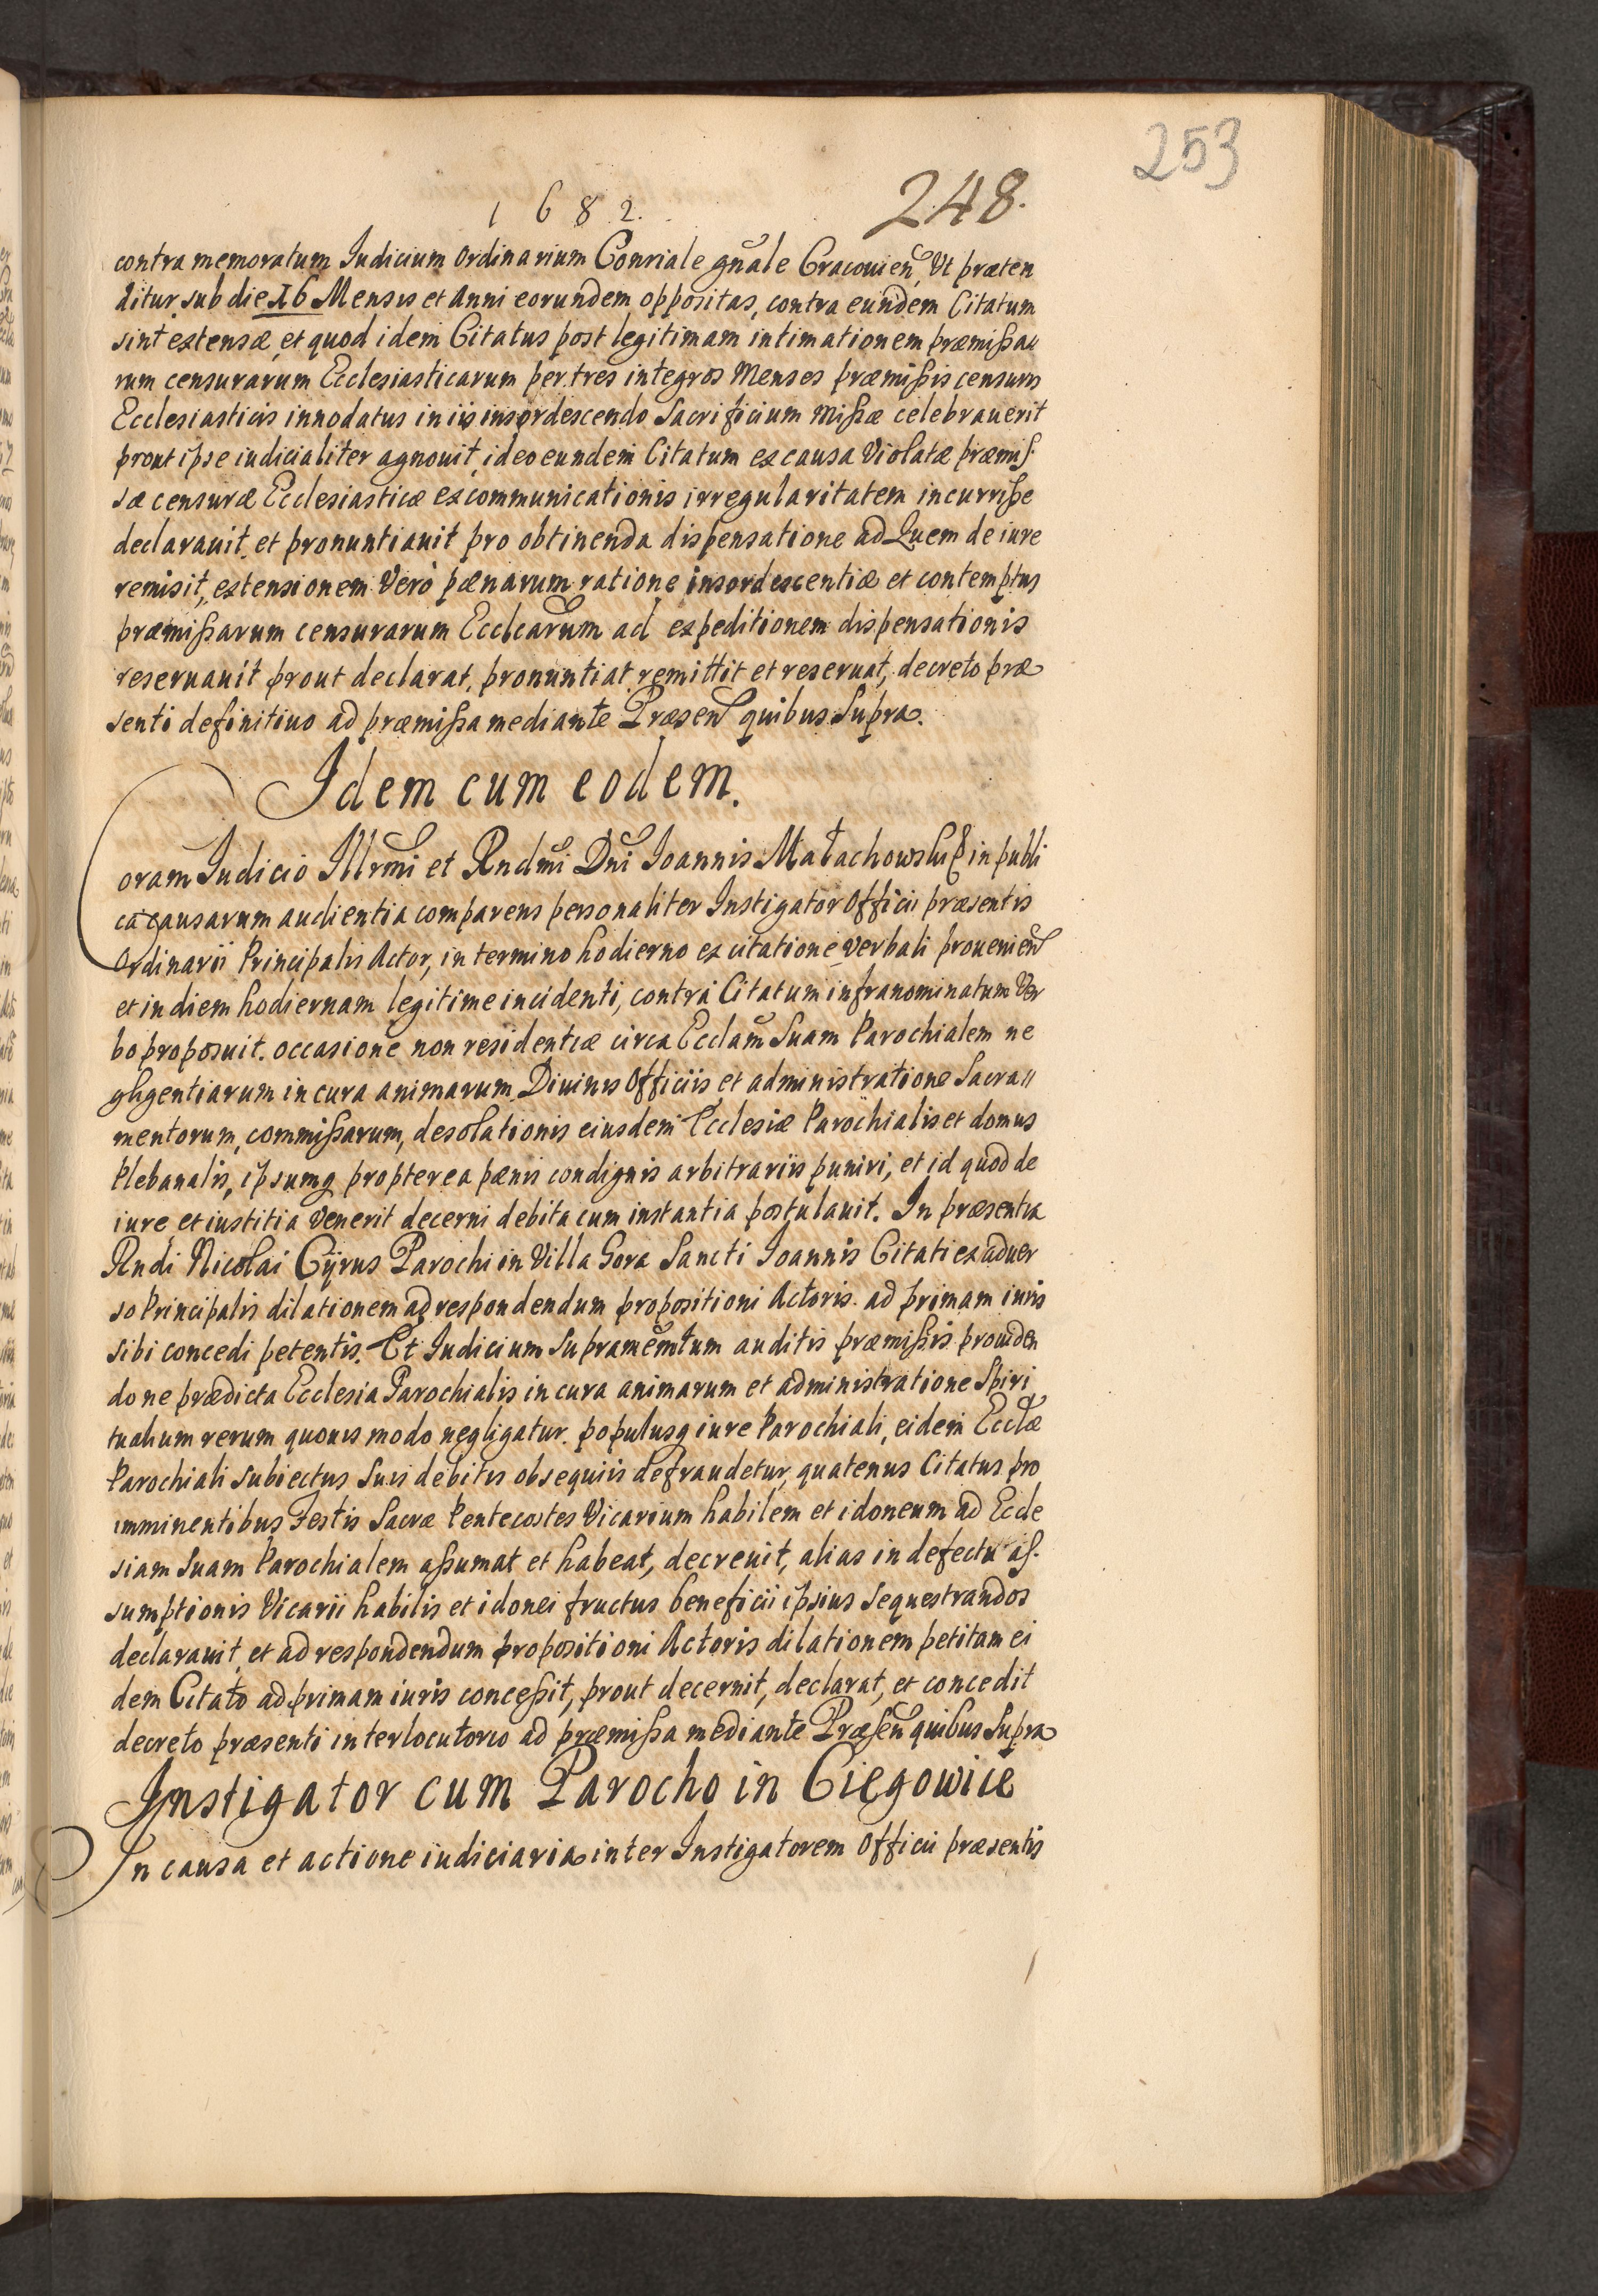 253
1682. 248.
contra memoratum Judicium ordinarium Conriale gñale Cracouieñ, Vt præten
ditur sub die 16 Mensis et Anni eorundem oppositas, contra eundem Citatum
sint extensæ, et quod idem Citatus post legitimam intimationem præmißaꝶ
rum censurarum Ecclesiasticarum per tres integros Menses præmißis censuris
Ecclesiasticis innodatus in iis insordescendo Sacrificium Mißæ celebrauerit
prout ipse iudicialiter agnouit, ideo eundem Citatum ex causa Violatæ præmis-
sæ censuræ Ecclesiasticæ excommunicationis irregularitatem incurriße
declarauit, et pronuntiauit pro obtinenda dispensatione ad Quem de iure
remisit, extensionem Verò pænarum ratione insordescentiæ et contemptus
præmißarum censurarum Ecclearum ad expeditionem dispensationis
reseruauit prout declarat, pronuntiat remittit et reseruat, decreto præ
senti definitiuo ad præmißa mediante Præsen quibus Supra.
Idem cum eodem.
Coram Judicio Illrmi et Rndmi Dni Ioannis Małachowski in publi
ca causarum audientia comparens personaliter Instigator Officii præsentis
Ordinarii Principalis Actor, in termino hodierno ex citatione verbali prouenien
et in diem hodiernam legitime incidenti, contra Citatum infranominatum Ver
bo proposuit. occasione non residentiæ circa Ecclam Suam Parochialem ne
gligentiarum in cura animarum Diuinis Officiis et administratione Sacra=
mentorum, commißarum, desolationis eiusdem Ecclesiæ Parochialis et domus
Plebanalis, ipsumq propterea pænis condignis arbitrariis puniri, et id quod de
iure et iustitia Venerit decerni debita cum instantia postulauit. In præsentia
Rndi Nicolai Cÿrus Parochi in Villa Gora Sancti Ioannis Citati ex aduer
so Principalis dilationem ad respondendum propositioni Actoris ad primam iuris
sibi concedi petentis. Et Judicium Supramemtum auditis præmißis prouiden
do ne prædicta Ecclesia Parochialis in cura animarum et administratione Spiri
tualium rerum quouis modo negligatur. populusq iure Parochiali, eidem Ecclæ
Parochiali subiectus suis debitis obsequiis defraudetur, quatenus Citatus pro
imminentibus Festis Sacræ Pentecostes Vicarium habilem et idoneum ad Eccle
siam Suam Parochialem aßumat et habeat, decreuit, alias in defectu as-
sumptionis Vicarii habilis et idonei fructus beneficii ipsius sequestrandos
declarauit, et ad respondendum propositioni Actoris dilationem petitam ei
dem Citato ad primam iuris conceßit, prout decernit, declarat, et concedit
decreto præsenti interlocutorio ad præmißa mediante Præsen quibus Supra
Instigator cum Parocho in Cięgowice
In causa et actione iudiciaria inter Instigatorem Officii præsentis